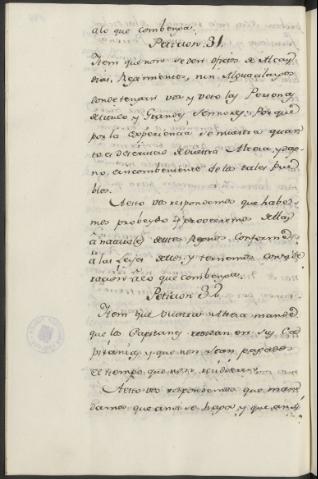 alo que combenga.
Peticion 31.
Item que non se den ofiçios de Alcay
dias, Regimientos, nin Alguacilazgos
donde tengan voz y voto las Personas
de titulo y Grandes Sennores, por que
por la Experiencia se muestra quan
to es deservicio de vuestra Alteza, y da
no, e incombeniente de los tales Pue
blos.
A esto vos respondemos que habe
mos probeydo y proveeremos dellos
a naturales destos Reynos, conforme
a las Leyes dellos, y ternemos conside
racion a lo que combenga.
Peticion 32.
Item que vuestra Alteza mande
que los Capitanes residan en sus Ca
pitanias, y que non sean pagados
el tiempo que non residieren.
A esto vos respondemos que man
damos que ansi se haga, y que ansi